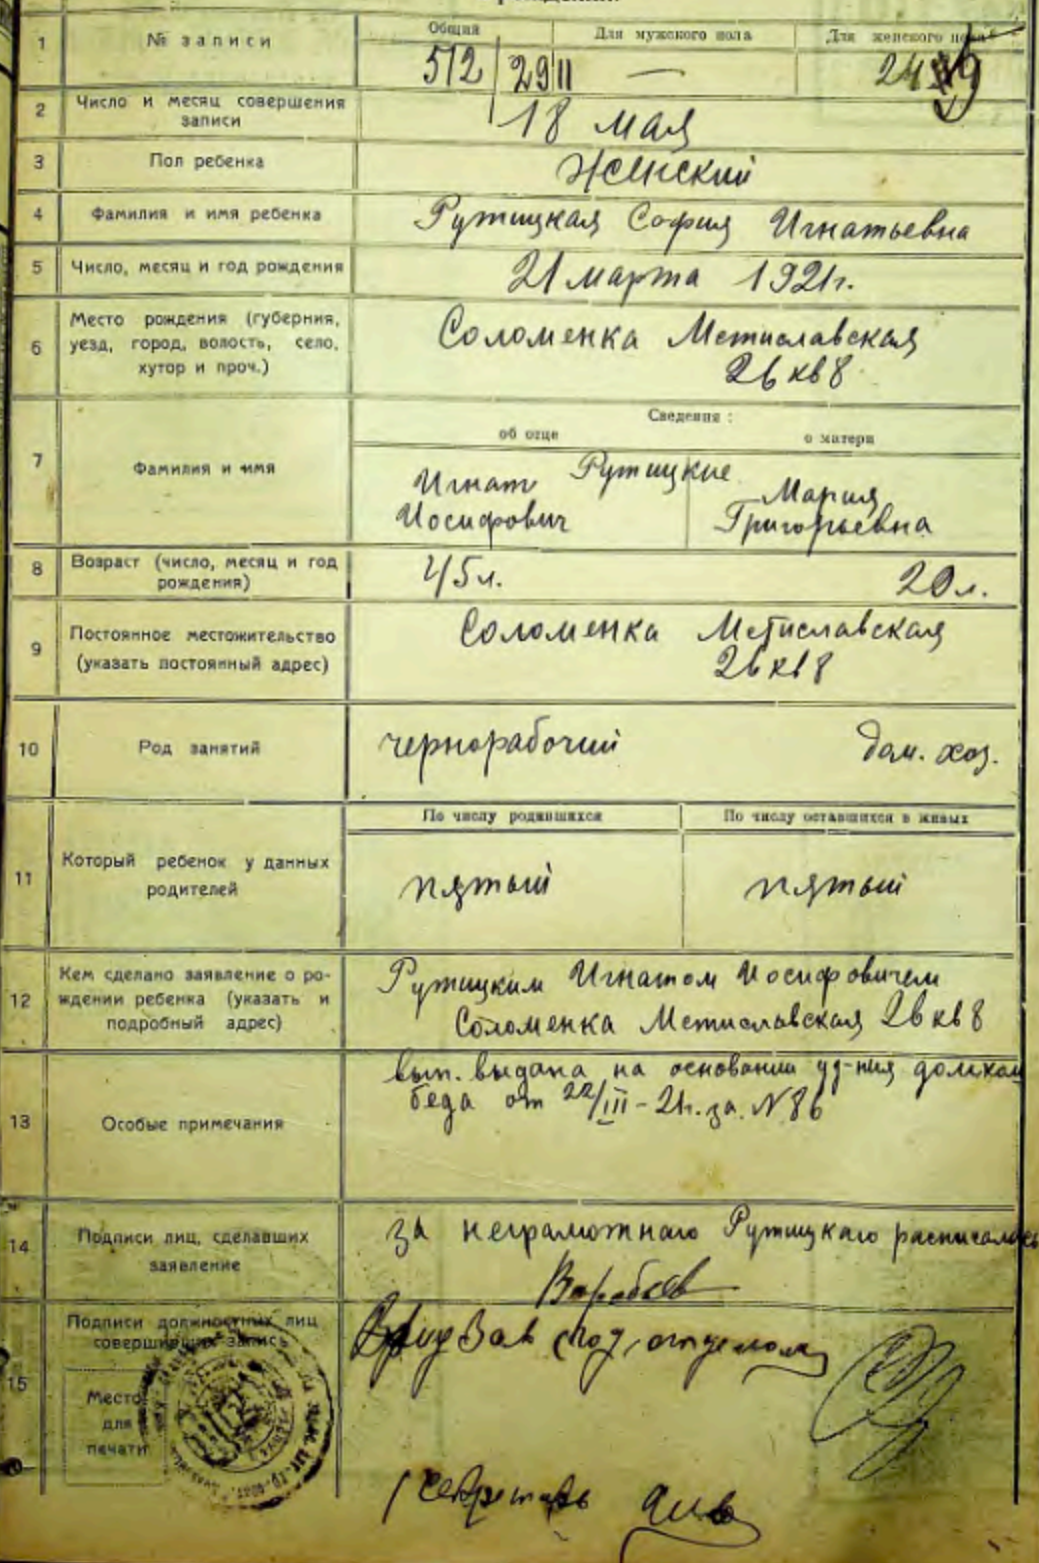 1
№ записи
Общий
Для мужского пола
Для женского пола
512 29 II
—
2
Число и месяц совершения
записи
18 мая
3
Пол ребенка
Женский
4
Фамилия и имя ребенка
Рутицкая София Игнатьевна
5
Число, месяц и год рождения
21 марта 1921г.
6
Место рождения (губерния,
уезд, город, волость, село,
хутор и проч.)
Соломенка Мстиславская
26 кв 8
7
Фамилия и имя
Сведения:
об отце
о матери
Рутицкие
Игнат
Иосифович
Мария
Григорьевна
8
Возраст (число, месяц и год
рождения)
45л.
20л.
9
Постоянное местожительство
(указать постоянный адрес)
Соломенка Мстиславская
26 кв 8
10
Род занятий
чернорабочий
дом. хоз.
11
Который ребенок у данных
родителей
По числу родившихся
По числу оставшихся в живых
пятый
пятый
12
Кем сделано заявление о ро-
ждении ребенка (указать и
подробный адрес)
Рутицким Игнатом Иосифовичем
Соломенка Мстиславская 26 кв 8
13
Особые примечания
вып. выдана на основании уд-ния домком
беда от 22/III - 21г. за №86
14
Подписи лиц, сделавших
заявление
за неграмотнаго Рутицкаго расписалась
15
Подписи должностных лиц
совершивших запись
Место
для
печати
Зав под отделом
Секретарь